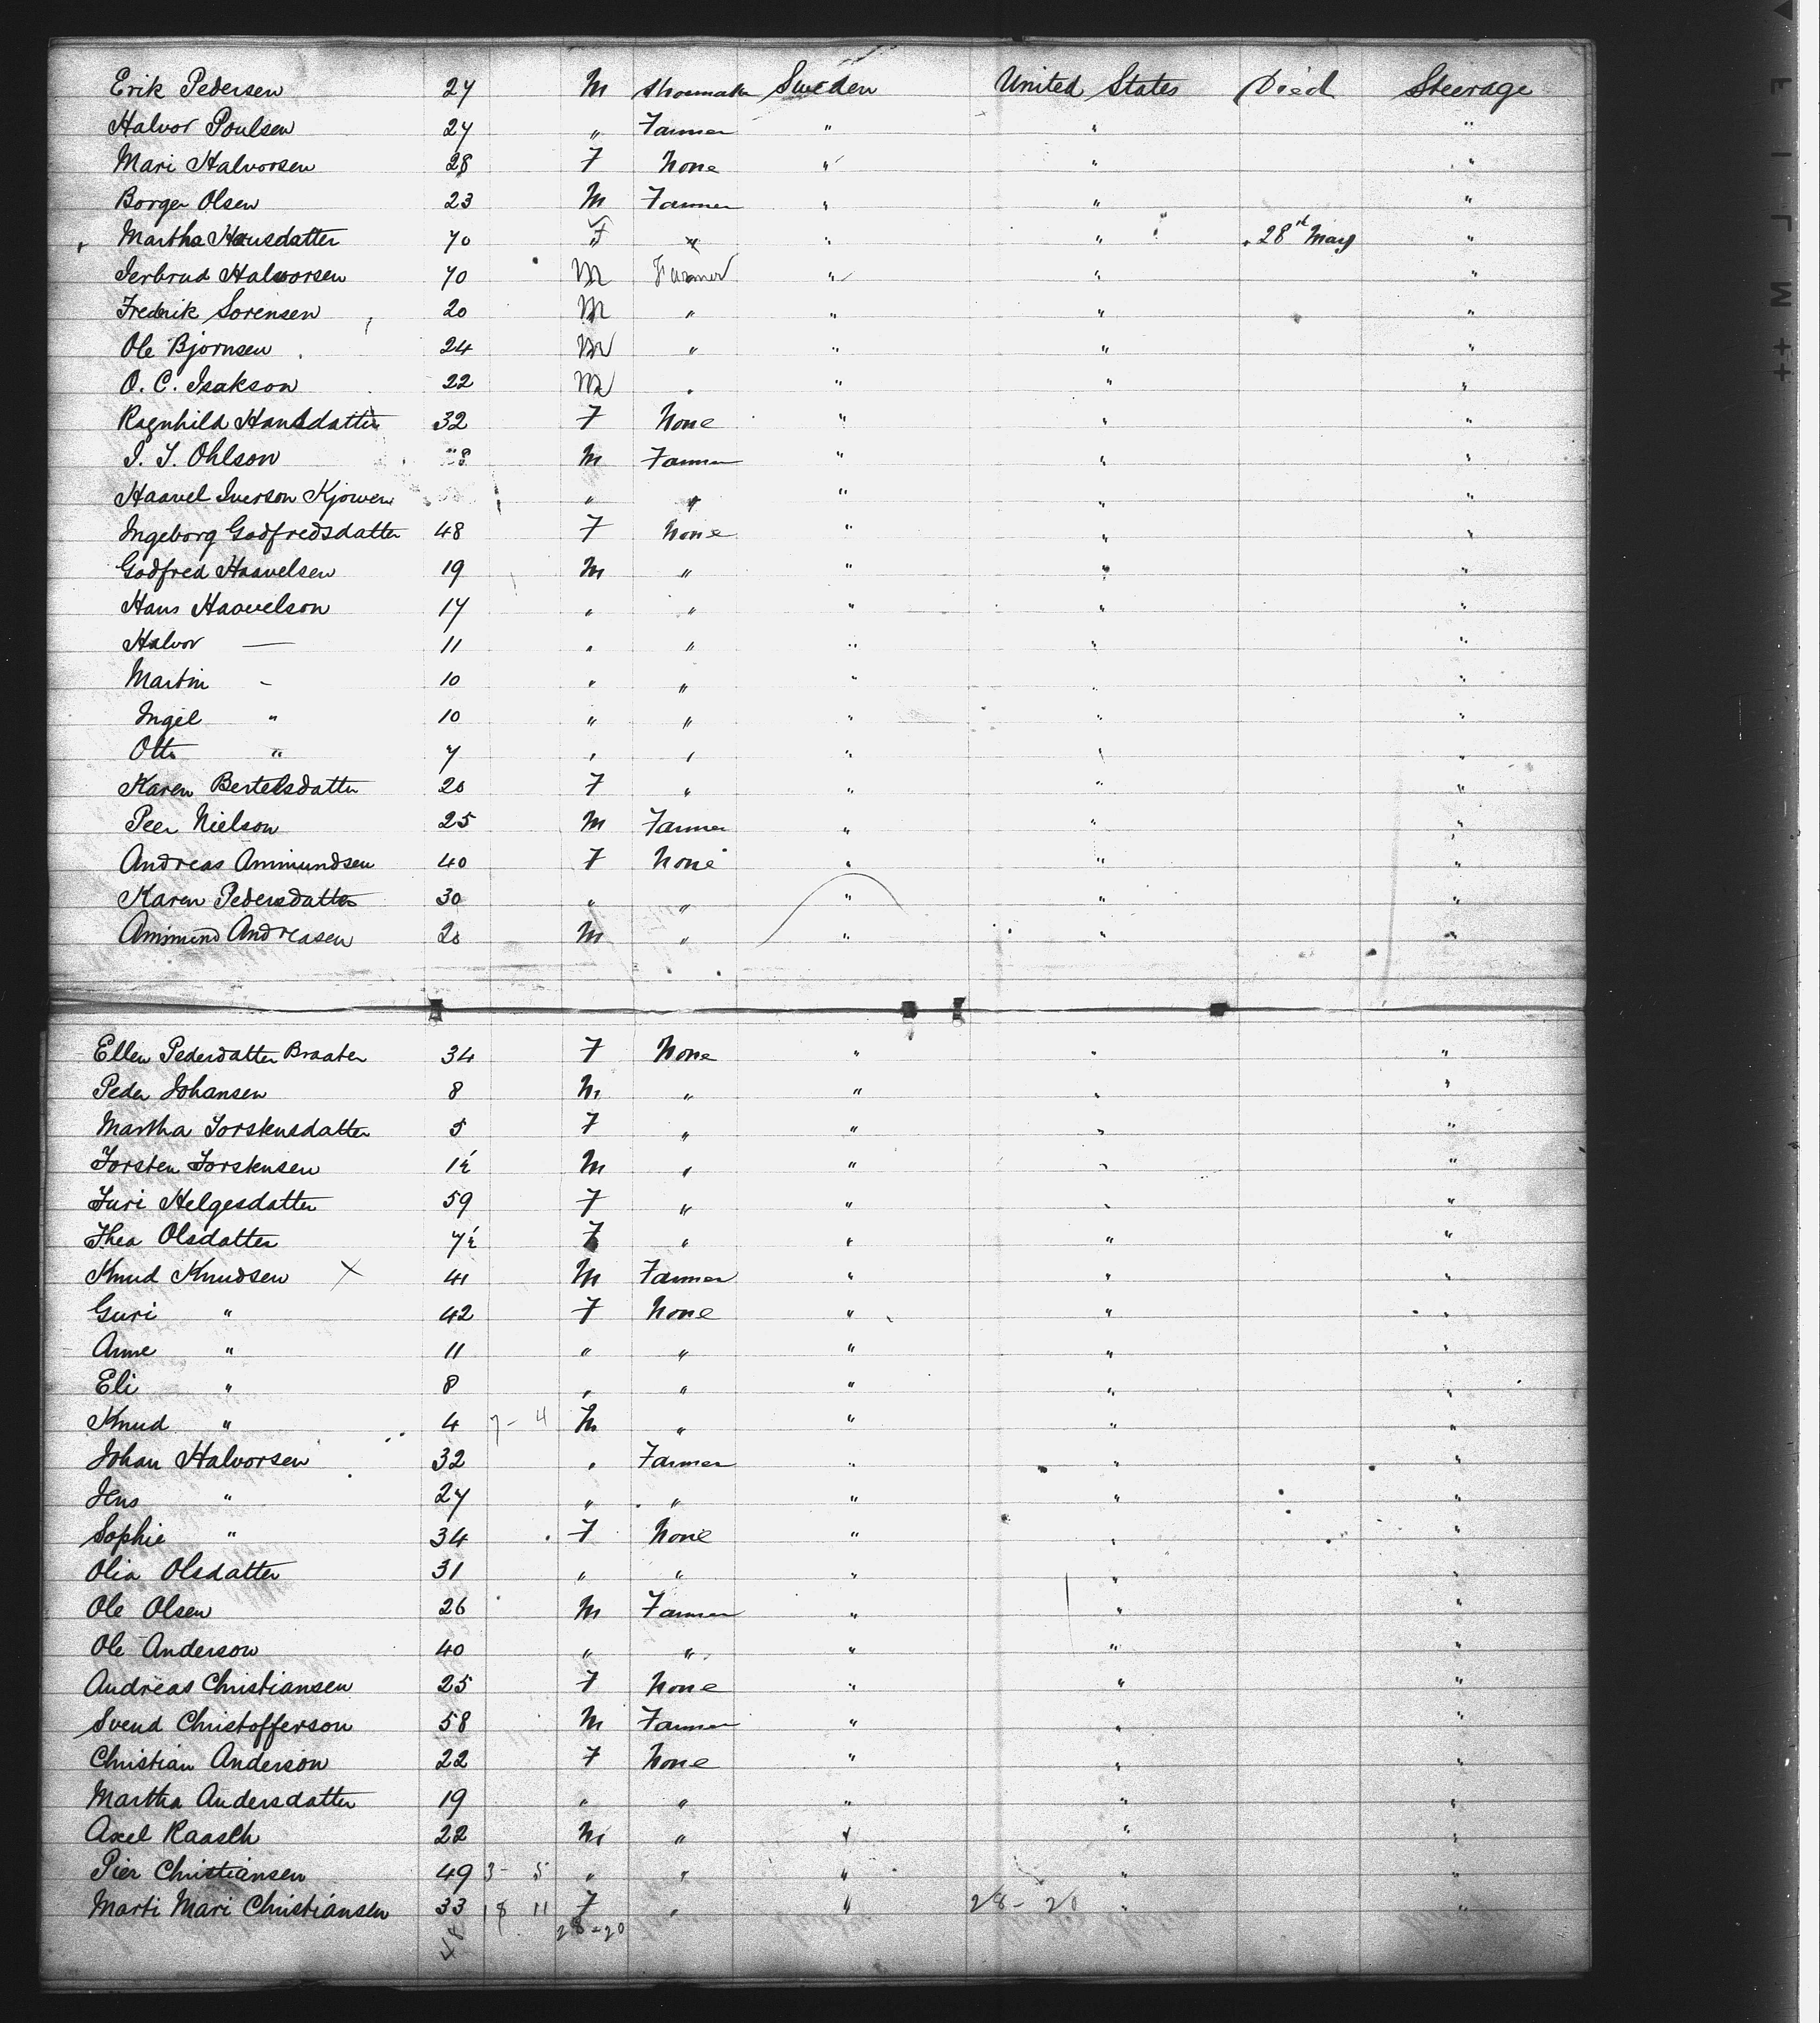 Erik Pedersen 27 M Shoemaker Sweden United States Died Steerage
Halvor Poulsen 27 " Farmer " " "
Mari Halvorsen 28 F None " " "
Borger Olsen 23 M Farmer " " "
Martha Hansdatter 70 F " " " 28th May "
Halvorsen 70 M Farmer " " "
Fredrik Sorensen 20 M " " " "
Ole Bjornsen 24 M " " " "
O. C. Isakson 22 M " " " "
Ragnhild Hansdatter 32 F None " " "
Ohlson M Farmer " " "
Haavel Iverson " " " " "
Ingeborg Godfredsdatter 48 F None " " "
Godfred Haavelsen 19 M " " " "
Hans Haavelson 17 " " " " "
Halvor — 11 " " " " "
Martin - 10 " " " " "
Ingel " 10 " " " " "
Otto " 7 " " " " "
Karen Bertelsdatter 20 F " " " "
Peer Nielson 25 M Farmer " " "
Andreas Ammundsen 40 F None " " "
Karen Pedersdatter 30 " " " " "
Ammund Andreasen 20 M " " " "
Ellen Pedersdatter Braaten 34 F None " " "
Peder Johansen 8 M " " " "
Martha Torstensdatter 5 F " " " "
Torsten Torstensen 1½ M " " " "
Turi Helgesdatter 59 F " " " "
Thea Olsdatter 7½ F " " " "
Knud Knudsen X 41 M Farmer " " "
Guri " 42 F None " " "
Anne " 11 " " " " "
Eli " 8 " " " " "
Knud " 4 7 - 4 M " " " "
Johan Halvorsen 32 " Farmer " " "
Jens " 27 " " " " "
Sophie " 34 F None " " "
Olia Olsdatter 31 " " " " "
Ole Olsen 26 M Farmer " " "
Ole Anderson 40 " " " " "
Andreas Christiansen 25 F None " " "
Svend Christofferson 58 M Farmer " " "
Christian Anderson 22 F None " " "
Martha Andersdatter 19 " " " " "
Axel Raasch 22 M " " " "
Pier Christiansen 49 3 - 5 " " " " "
Marti Mari Christiansen 33 18 11 F " " 28 - 20 " "
48 28 - 20